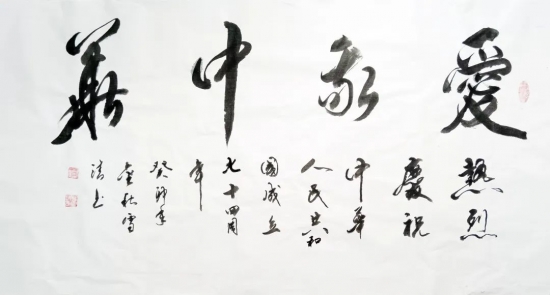 愛我中華
熱烈
慶祝
中華
人民共和
國成立
七十四周
年
癸卯年
金秋雪
书